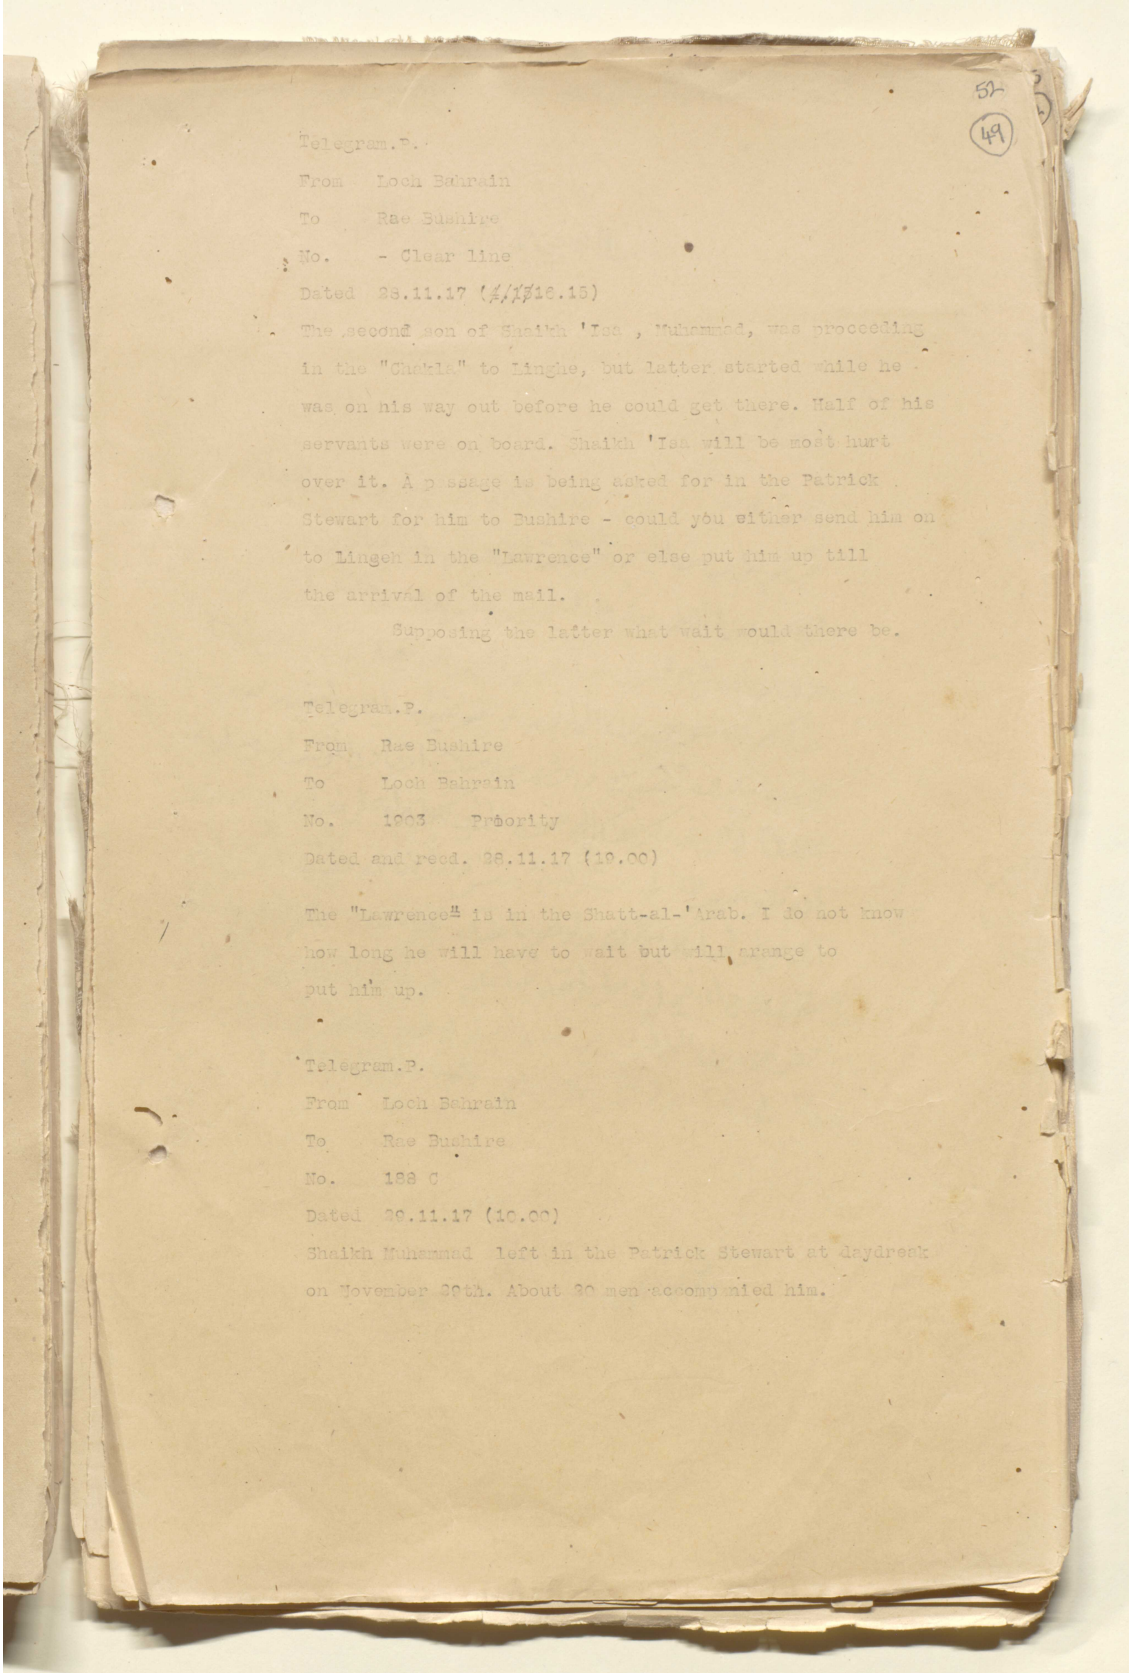 52
49
Telegram.P.
From Loch Bahrain
To Rae Bushire
No. - Clear line
Dated 28.11.17 (16.15)
The second son of Shaikh 'Isa , Muhammad, was proceeding
in the "Chakla" to Linghe, but latter started while he
was on his way out before he could get there. Half of his
servants were on board. Shaikh 'Isa will be most hurt
over it. A passage is being asked for in the Patrick
Stewart for him to Bushire - could you either send him on
to Lingeh in the "Lawrence" or else put him up till
the arrival of the mail.
Supposing the latter what wait would there be.
Telegram.P.
From Rae Bushire
To Loch Bahrain
No. 1903 Priority
Dated and recd. 28.11.17 (19.00)
The "Lawrence" is in the Shatt-al-'Arab. I do not know
how long he will have to wait but will arange to
put him up.
Telegram.P.
From Loch Bahrain
To Rae Bushire
No. 188 C
Dated 29.11.17 (10.00)
Shaikh Muhammad left in the Patrick Stewart at daydreak
on November 29th. About 20 men accompanied him.